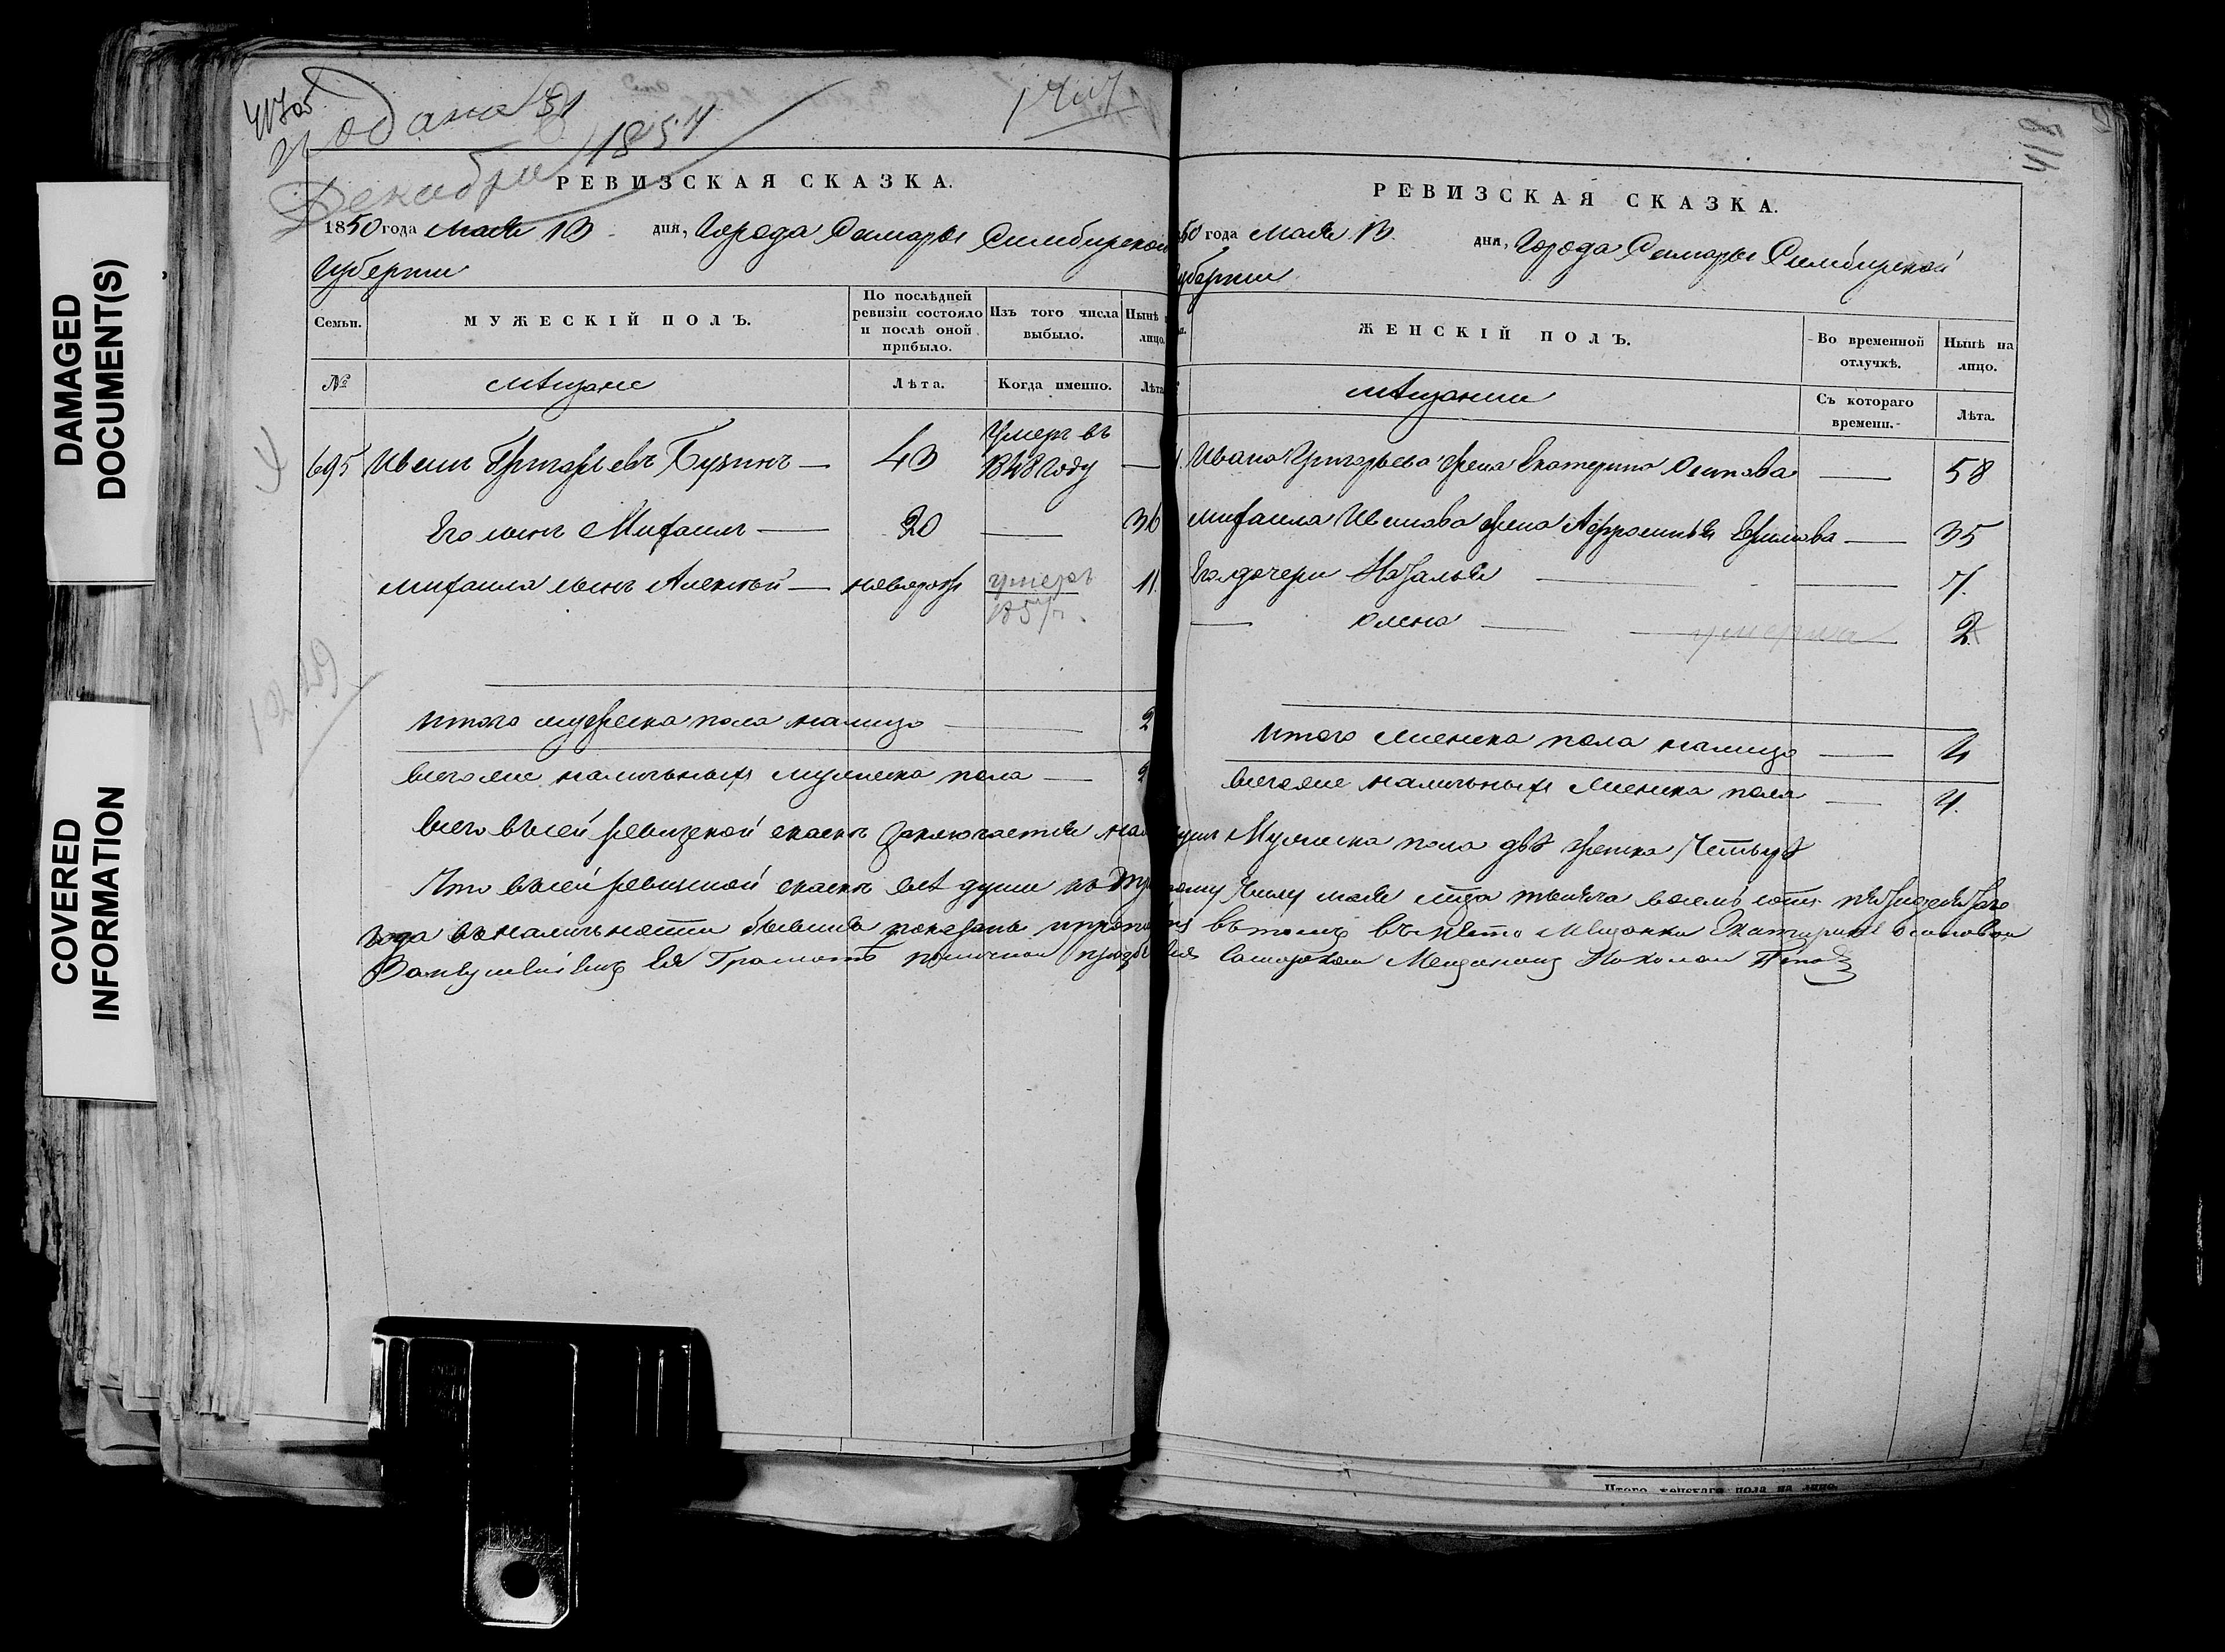 DAMAGED
DOCUMENT(S)
COVERED
INFORMATION
подана 31
Декабря 1857
418
РЕВИЗСКАЯ СКАЗКА.
1850 года Маія 13 дня, Города Самары Симбирской
Губернии
Семьи.
МУЖЕСКІЙ ПОЛЪ.
По послѣдней ревизіи состояло и послѣ оной прибыло.
Изъ того числа выбыло.
Нынѣ
лицо.
№
мѣщане
Лѣта.
Когда именно.
Лѣта
695 Иванъ Григорьевъ Бузинъ — 43 Умеръ въ 1848 году —
Его сынъ Михаилъ — 20 — 36
Михаила сынъ Алексѣй — новорож 11
умеръ
185
1249
итого мужеска пола налицо — 2
всего же наличныхъ мужеска пола — 2
РЕВИЗСКАЯ СКАЗКА.
50 года Маія 13 дня, Города Самары Симбирской
убернии
ЖЕНСКІЙ ПОЛЪ.
Во временной отлучкѣ.
Нынѣ на лицо.
мѣщанки
Съ котораго времени.
Лѣта.
Ивана Григорьева жена Екатерина Осипова — 58
Михаила Иванова жена Афросинья — 35
Его дочери Наталья — 7.
Олена — умерла 2
итого женска пола налицо — 4
всего же наличныхъ женска пола — 4.
Всего въ сей ревизской сказкѣ заключается мужеска пола двѣ женска четыре
Что въ сей ревизской сказкѣ всѣ души по число маія мѣца тысяча восемь сотъ пятидесятаго
года въ наличности показаны въ томъ вместо мѣщанки Екатерины Осиповой
грамотѣ самарской Мещанинъ
Итого женскаго пола на лицо.